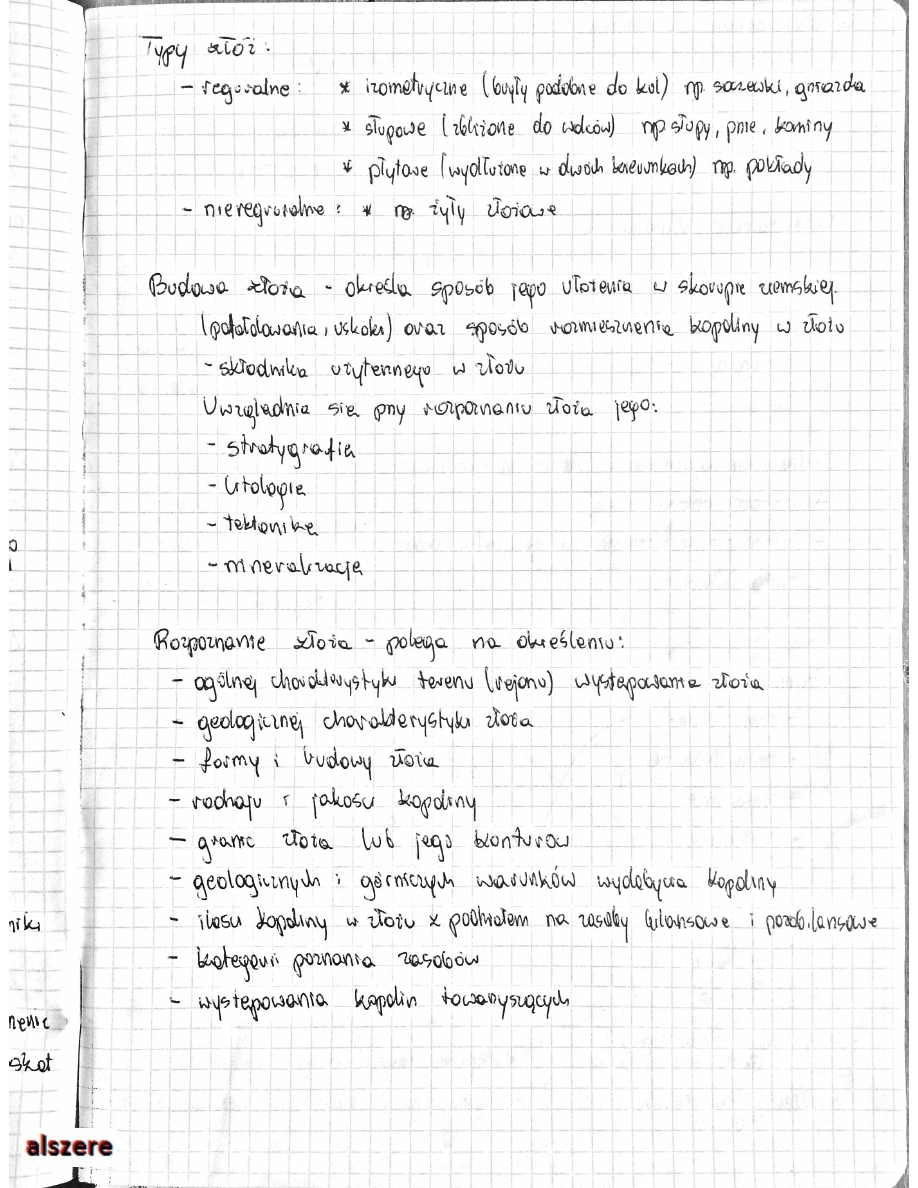 Typy złóż:
- regularne: * izometryczne (bryły podobne do kul) np. soczewki, gniazda
* słupowe (zbliżone do walców) np słupy, pnie, kominy
* płytowe (wydłużone w dwóch kierunkach) np. pokłady
- nieregularne: * np. żyły złożowe
Budowa złoża - określa sposób jego ułożenia w skorupie ziemskiej.
(pofałdowania, uskoki) oraz sposób rozmieszczenia kopaliny w złożu
- składnika użytecznego w złożu
Uwzględnia się przy rozpoznaniu złoża jego:
- stratygrafię
- litologię
- tektonikę
- mineralizację
Rozpoznanie złoża - polega na określeniu:
- ogólnej charakterystyki terenu (rejonu) występowania złoża
- geologicznej charakterystyki złoża
- formy i budowy złoża
- rodzaju i jakości kopaliny
- granic złoża lub jego konturów
- geologicznych i górniczych warunków wydobycia kopaliny
- ilości kopaliny w złożu z podziałem na zasoby bilansowe i pozabilansowe
- kategorii poznania zasobów
- występowania kopalin towarzyszących
niki
nenie
skał
alszere